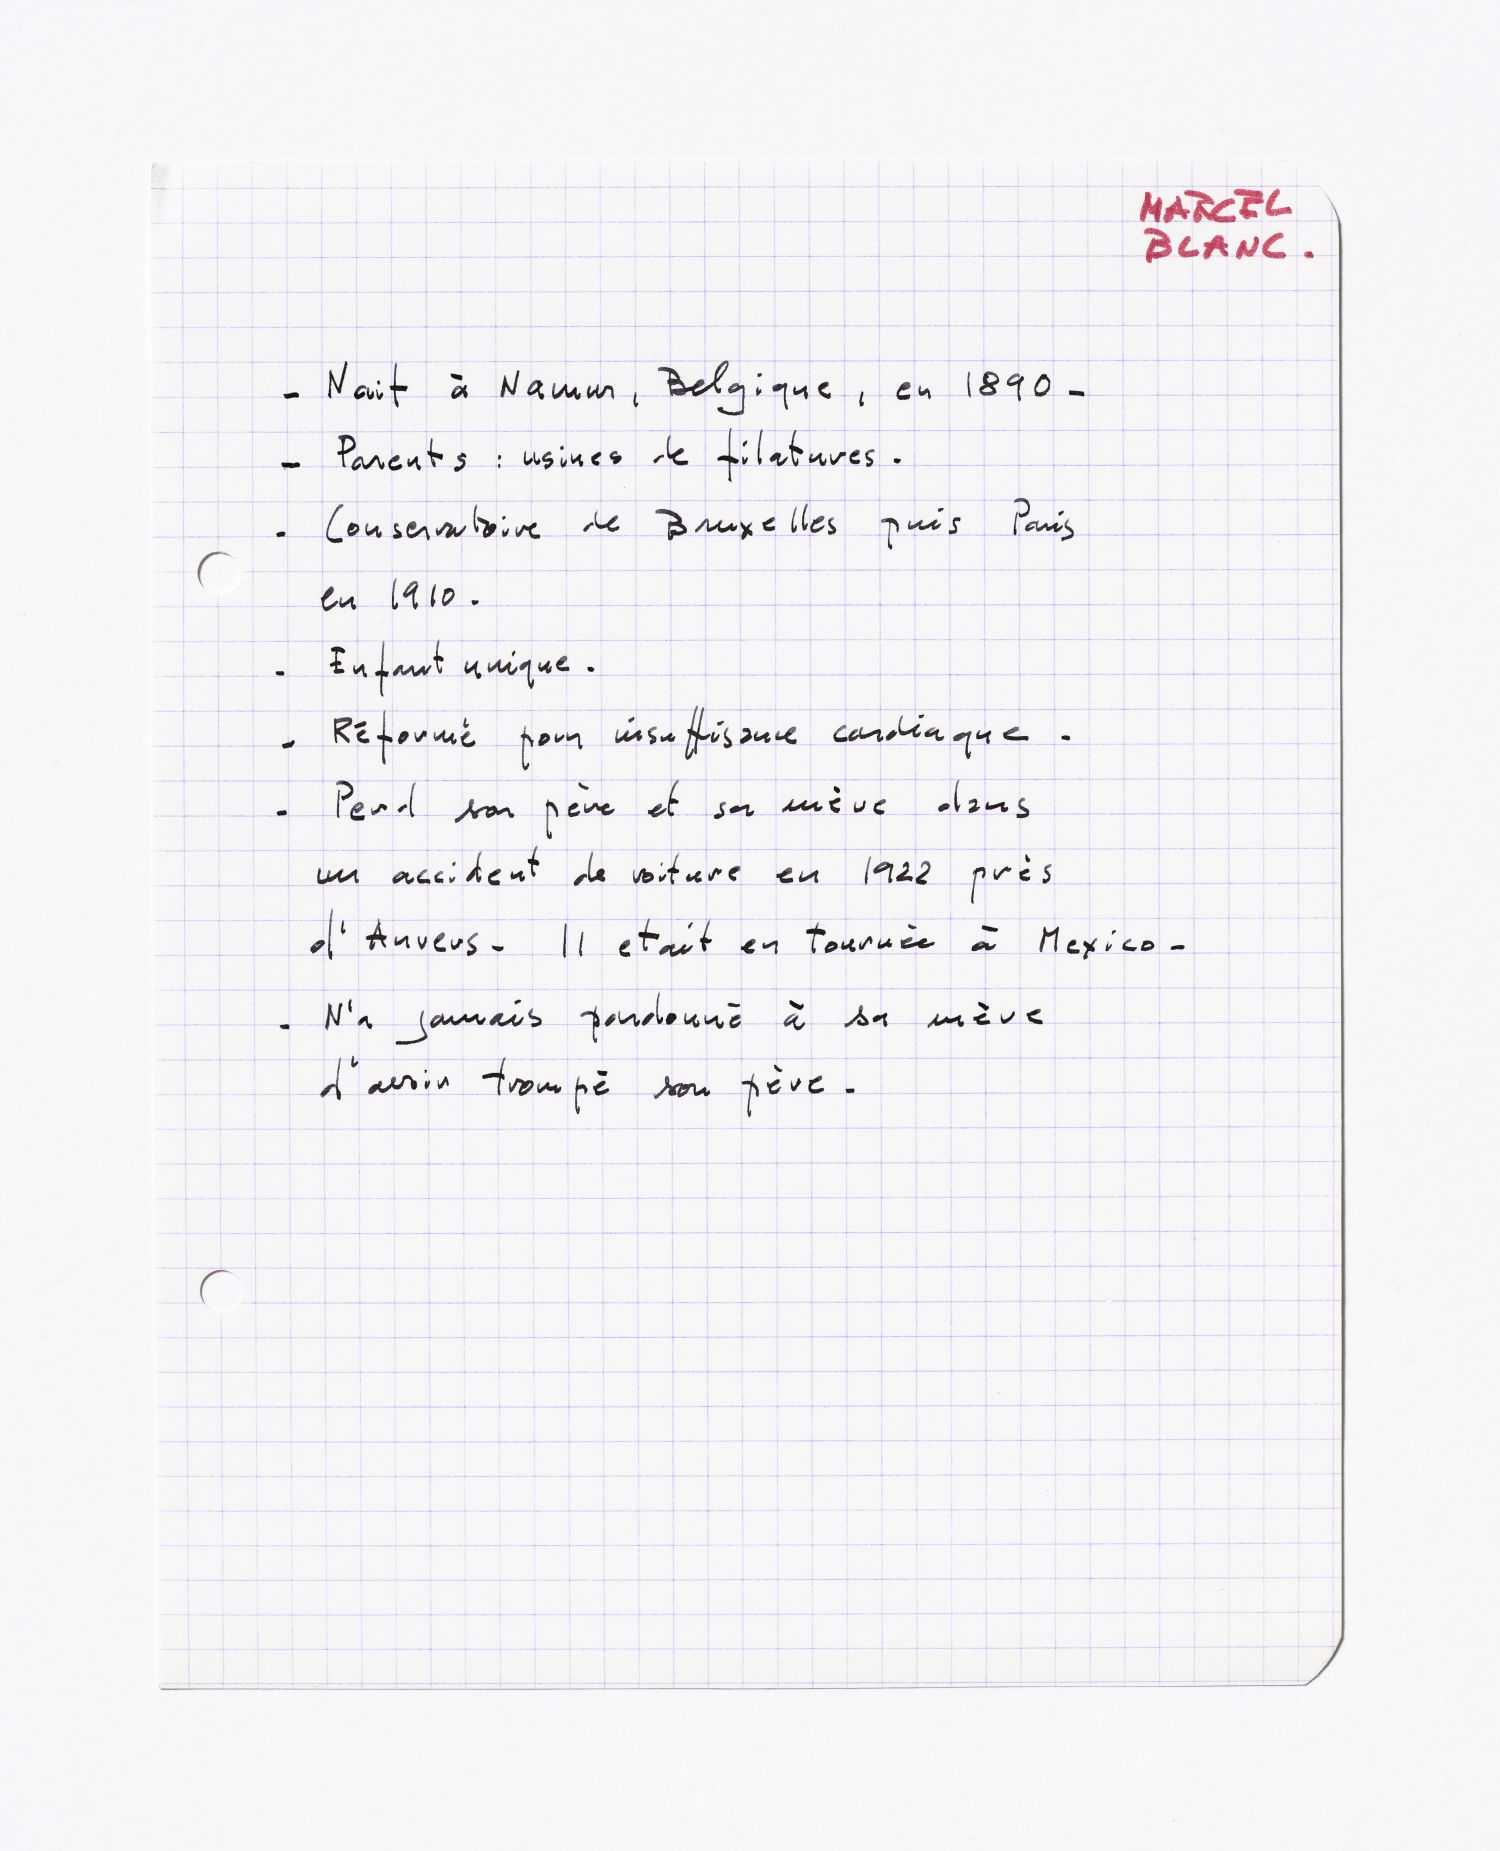 MARCEL
BLANC.
- Nait à Namur, Belgique, en 1890-
- Parents : usines de filatures.
- Conservatoire de Bruxelles puis Paris
en 1910.
- Enfant unique.
- Réformé pour insuffisance cardiaque.
- Perd son père et sa mère dans
un accident de voiture en 1922 près
d'Anvers- Il etait en tournée à Mexico-
- N'a jamais pardonné à sa mère
d'avoir trompé son père-